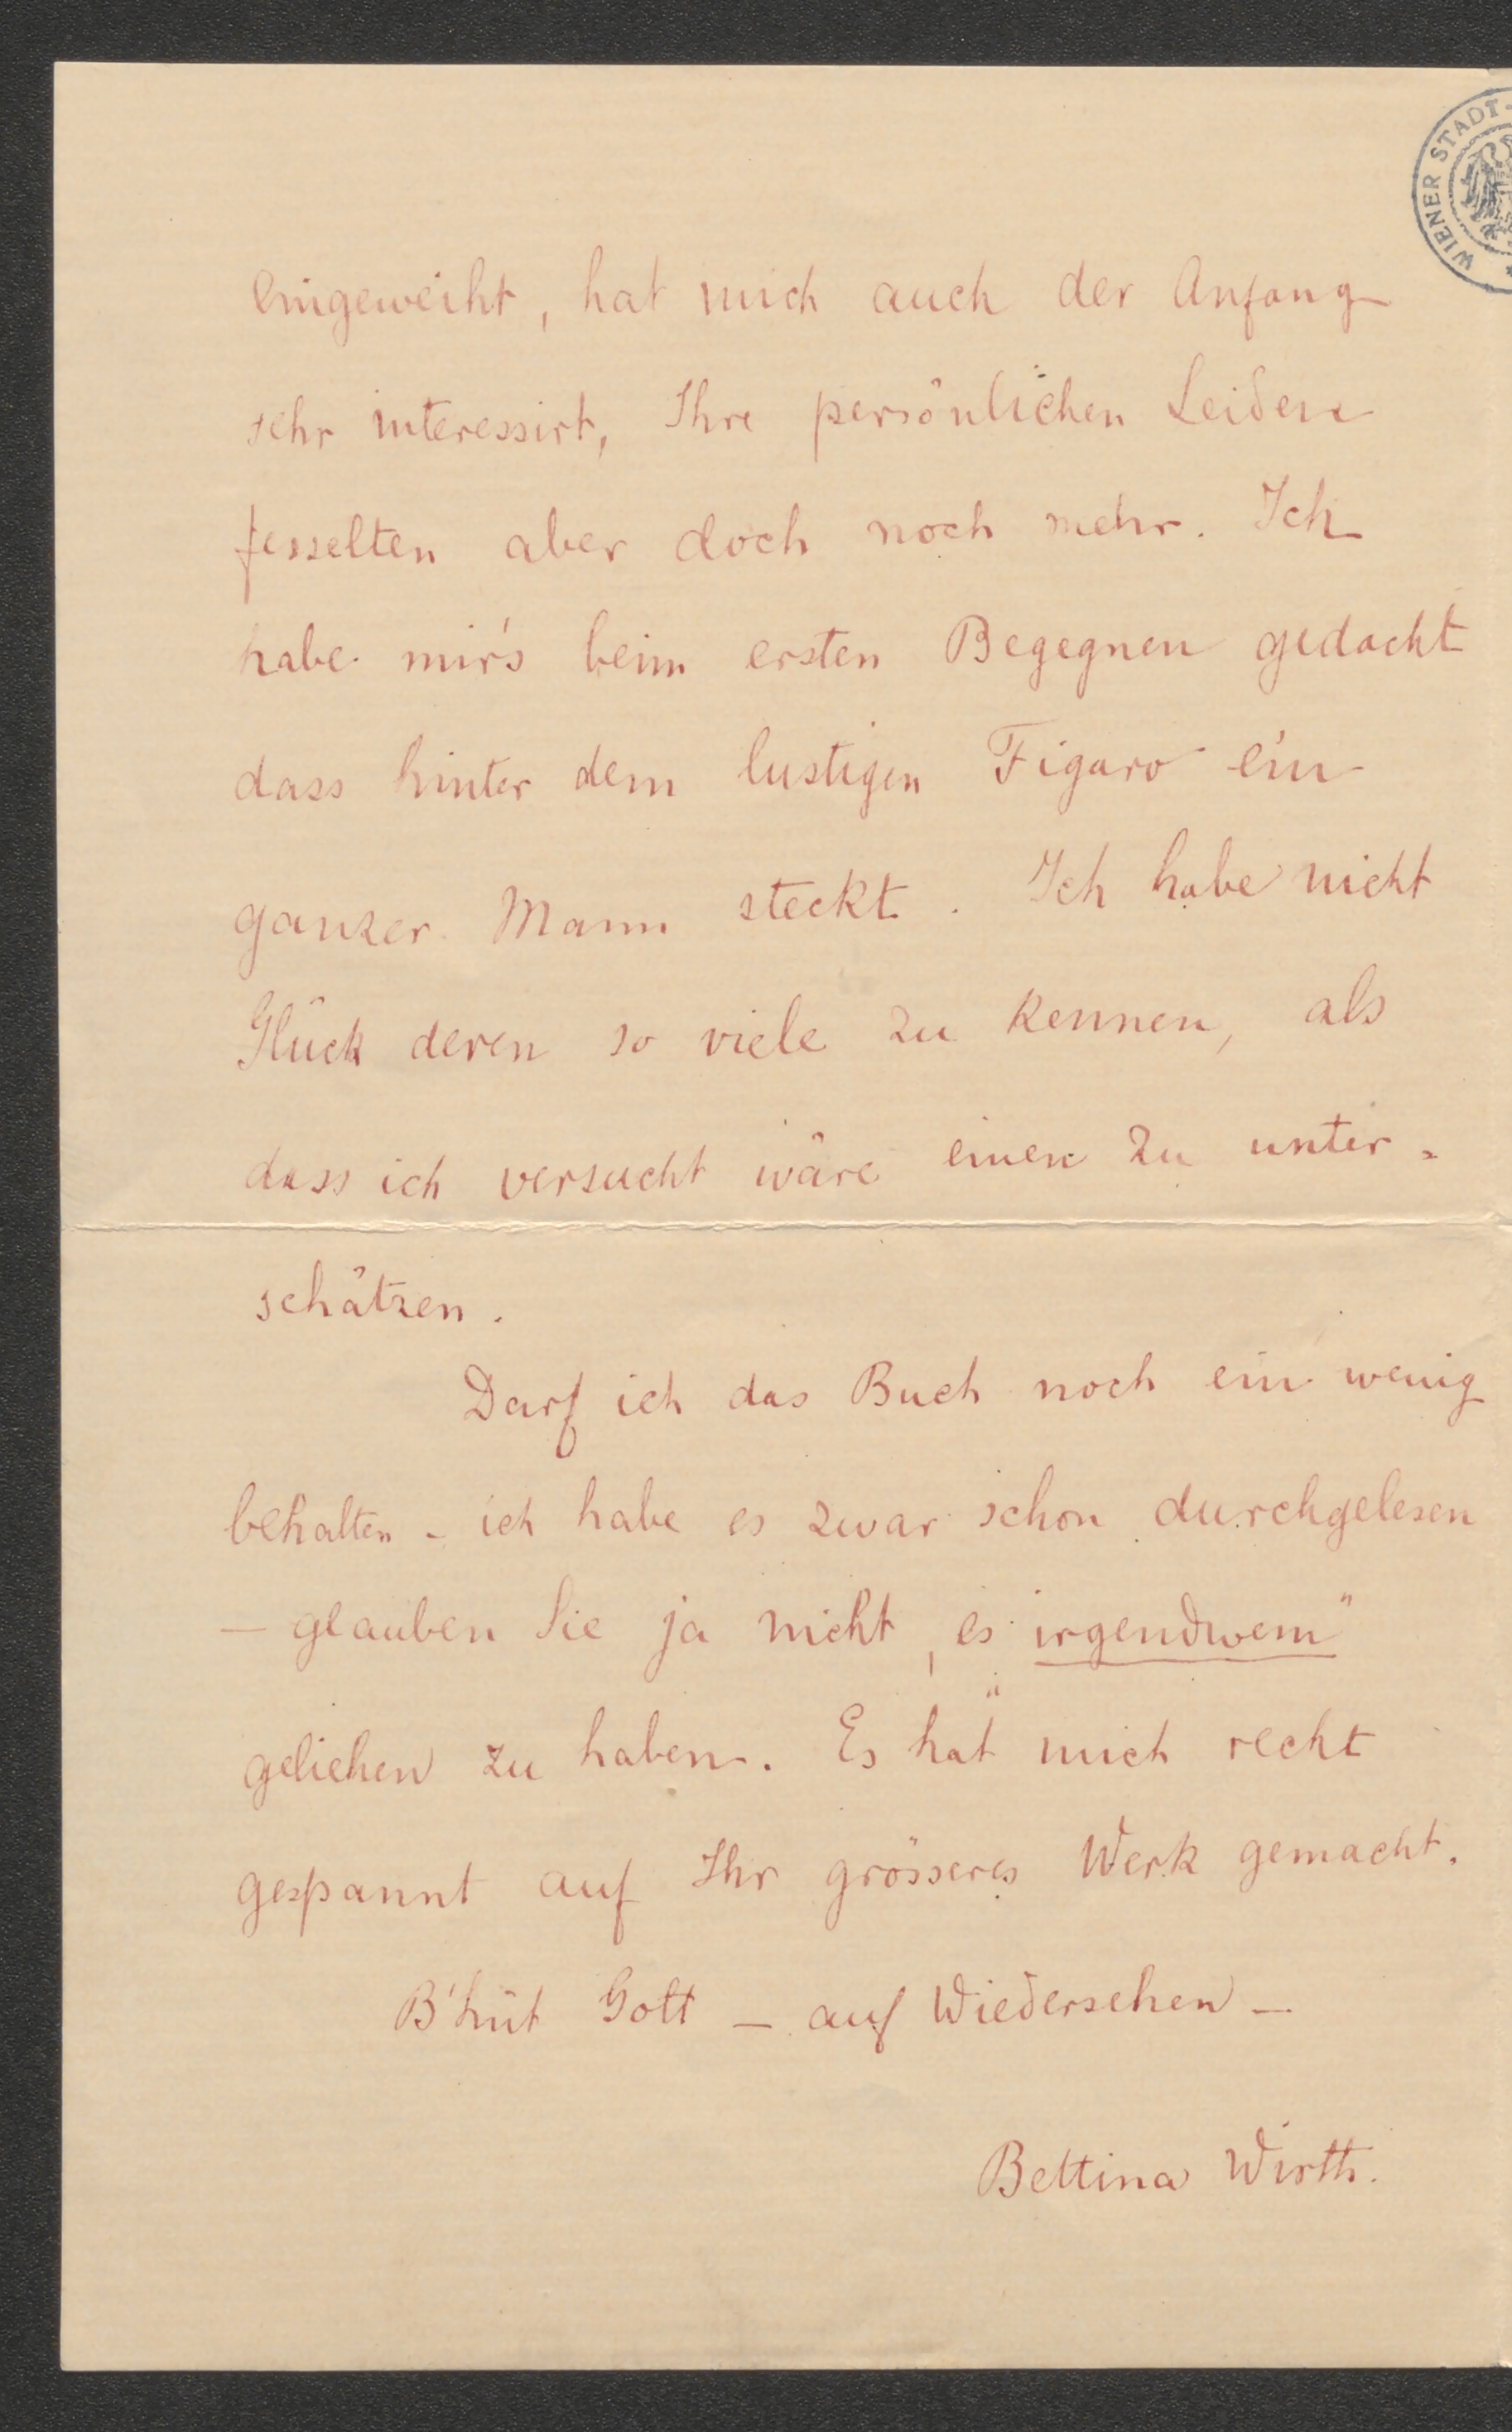 WIENER STADT-
eingeweiht, hat mich auch der Anfang
sehr interessirt, Ihre persönlichen Leiden
fesselten aber doch noch mehr. Ich
habe mir's beim ersten Begegnen gedacht
dass hinter dem lustigen Figaro ein
ganzer Mann steckt. Ich habe nicht
Glück deren so viele zu kennen, als
dass ich versucht wäre einen zu unter=
schätzen.
Darf ich das Buch noch ein wenig
behalten - ich habe es zwar schon durchgelesen
— glauben Sie ja nicht, es irgendwem"
geliehen zu haben. Es hat mich recht
gespannt auf Ihr grösseres Werk gemacht.
B'hüt Gott — auf Wiedersehen —
Bettina Wirth.